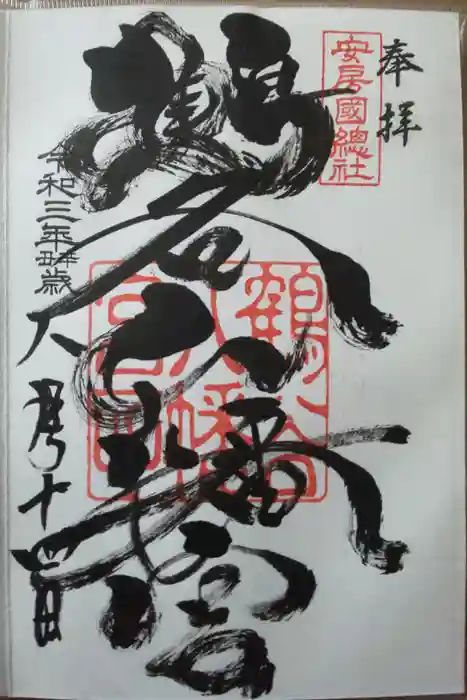 奉拝
安房國總社
鶴谷八幡宮
鶴谷八幡宮
令和三年辛丑歳
八月十四日